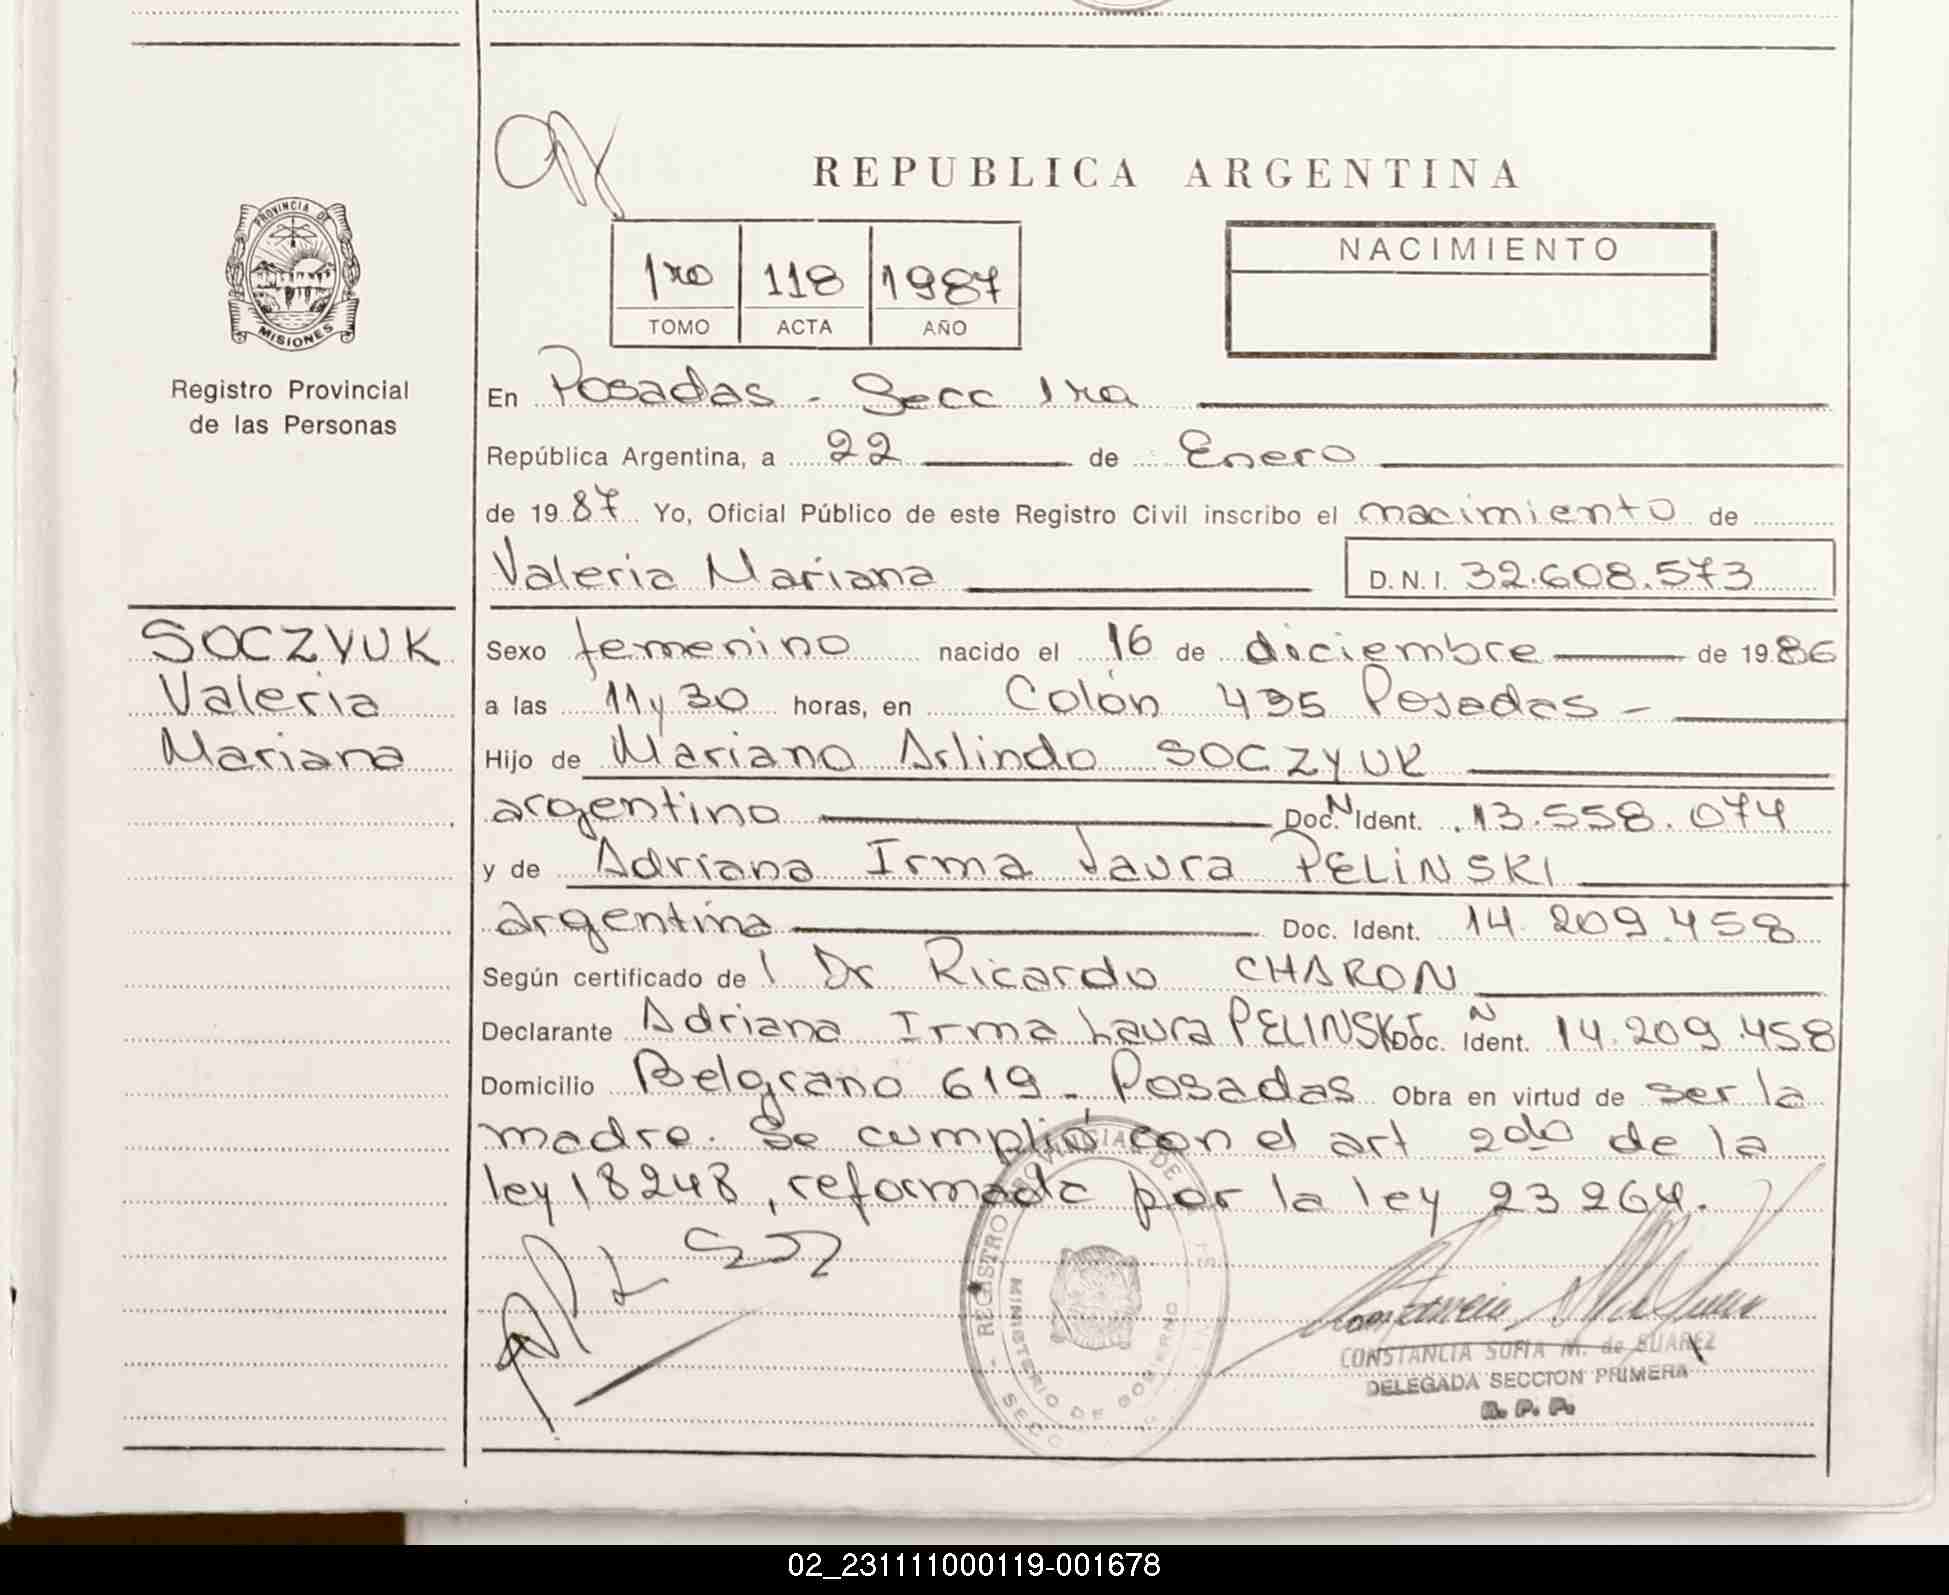 REPUBLICA ARGENTINA
PROVINCIA DE
MISIONES
Registro Provincial
de las Personas
1ro 118 1987
TOMO ACTA AÑO
NACIMIENTO
En Posadas - Secc 1ra
República Argentina, a 22 de Enero
de 1987 Yo, Oficial Público de este Registro Civil inscribo el nacimiento de
Valeria Mariana D.N.I. 32.608.573
SOCZYUK
Valeria
Mariana
Sexo femenino nacido el 16 de diciembre de 1986
a las 11 y 30 horas, en Colón 435 Posadas -
Hijo de Mariano Arlindo SOCZYUK
argentino Doc. N Ident. 13.558.074
y de Adriana Irma Laura PELINSKI
argentina Doc. Ident. 14.209.458
Según certificado de l Dr Ricardo CHARON
Declarante Adriana Irma Laura PELINSKI Doc. N Ident. 14.209.458
Domicilio Belgrano 619 - Posadas Obra en virtud de ser la
madre. Se cumplió con el art 2do de la
ley 18248, reformada por la ley 23264.
REGISTRO PROVINCIAL DE
MINISTERIO DE GOBIERNO
CONSTANCIA SOFIA M. de SUAREZ
DELEGADA SECCION PRIMERA
R. P. P.
02_231111000119-001678